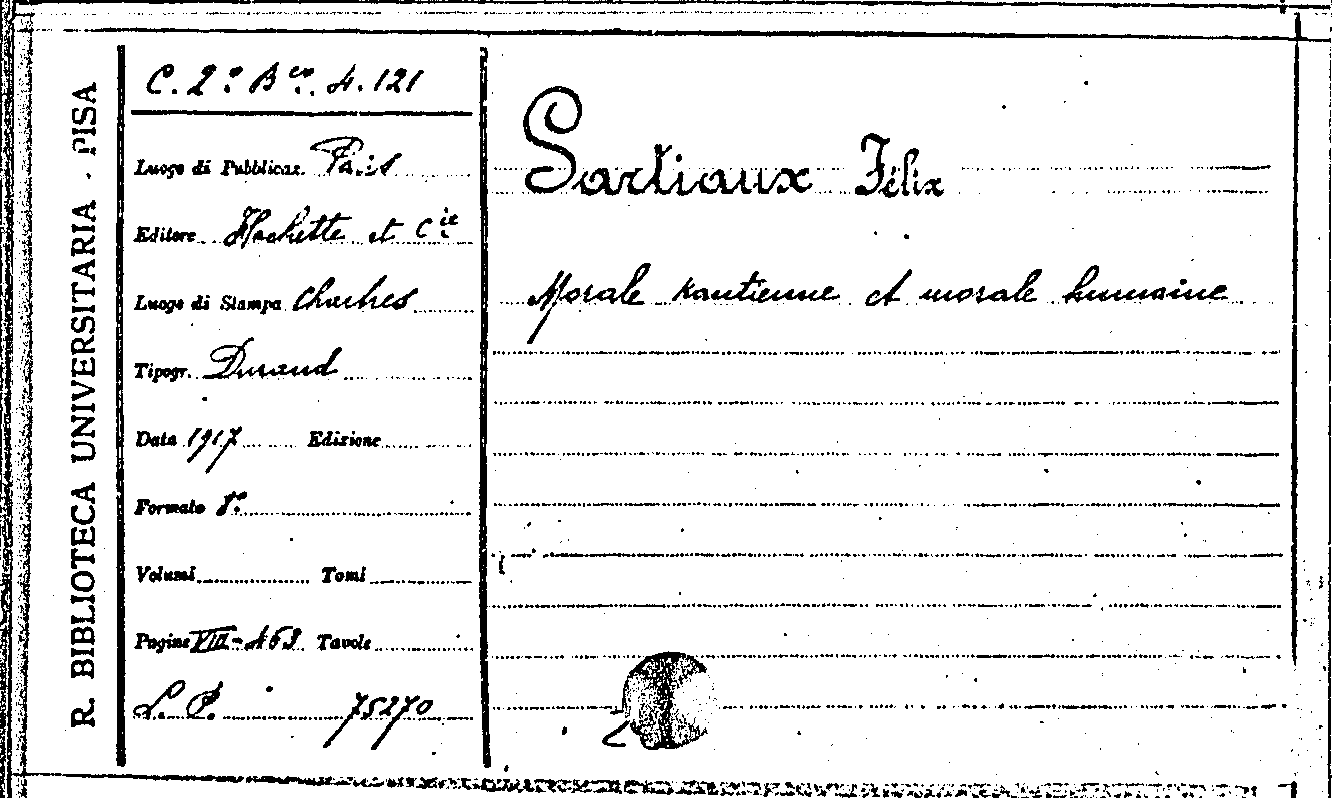 R. BIBLIOTECA UNIVERSITARIA . PISA
C. 2º Bco. 4. 121
Luogo di Pubblicaz. Paris
Editore Hachette et Cie
Luogo di Stampa Chartres
Tipogr. Durand
Data 1917 Edizione
Formato 8º
Volumi Tomi
Pagine VIII- Tavole
L. P. 75270
Sartiaux Félix
Morale kantienne et morale humaine